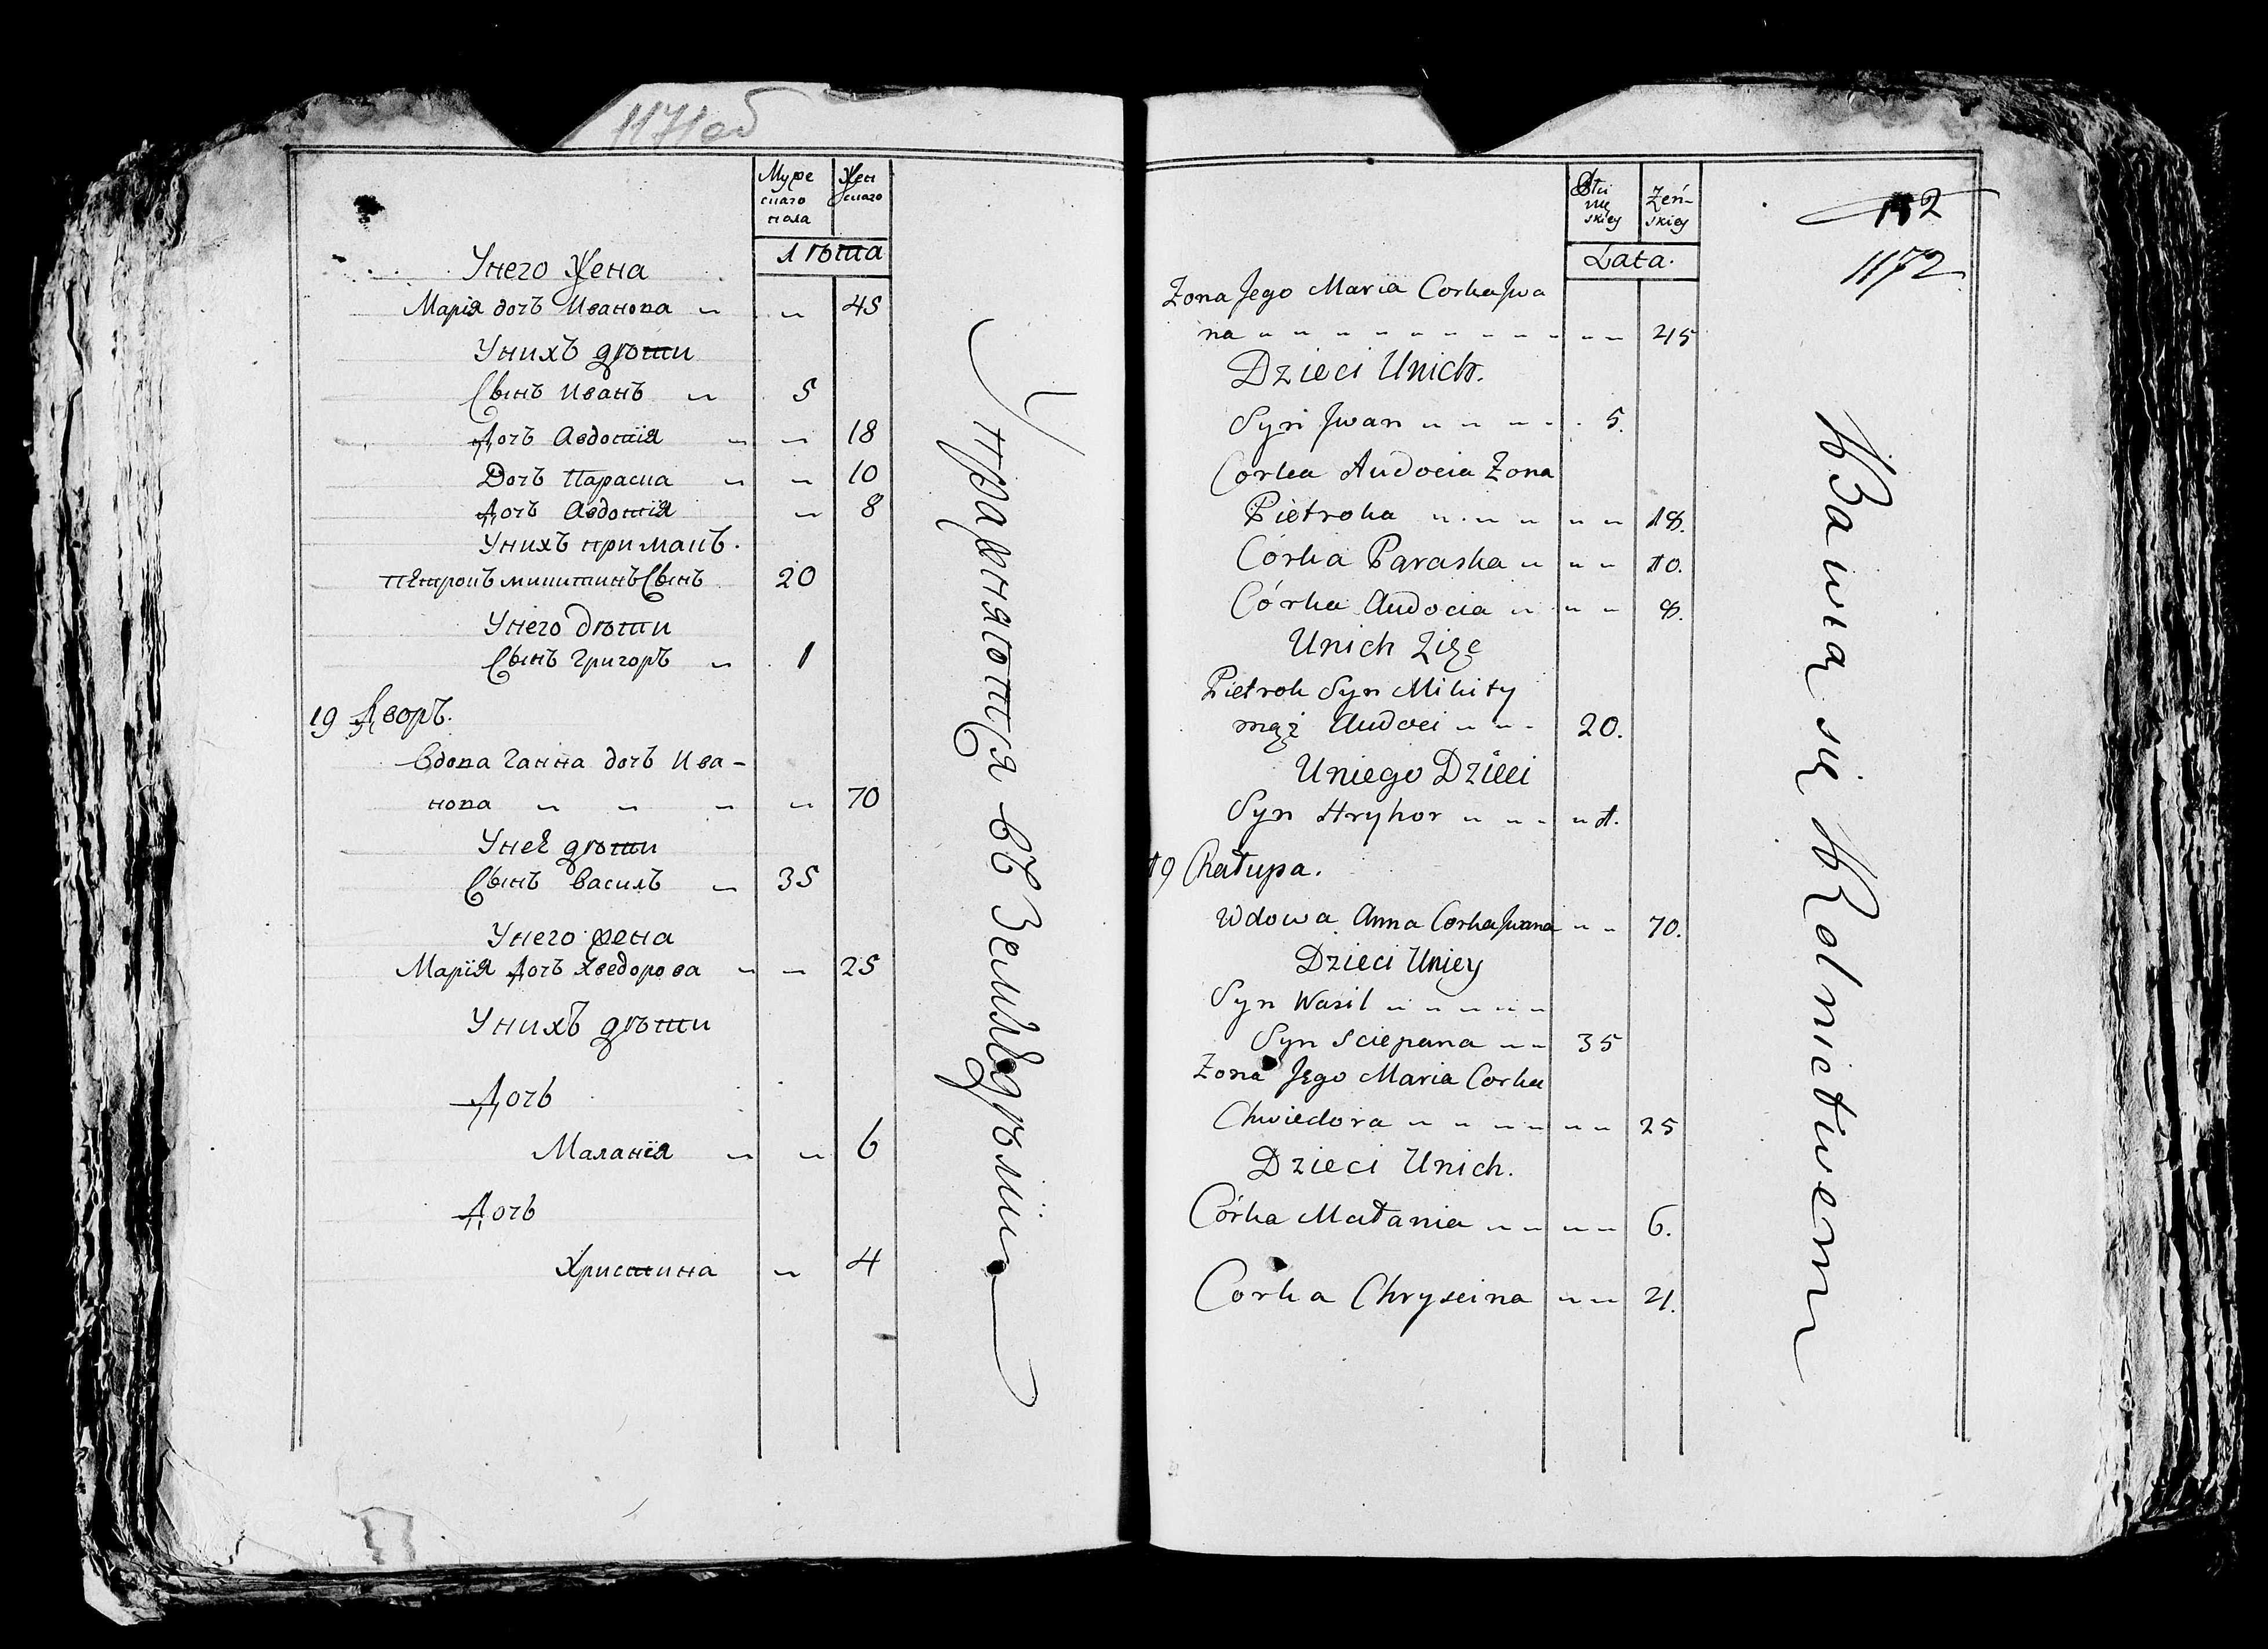 1171об
Муже Жен
скаго скаго
пола
Лѣта
Унего Жена
Марія дочъ Иванова " " 45
Унихъ дѣти
Сынъ Иванъ " 5
Дочъ Авдотія " " 18
Дочъ Параска " " 10
Дочъ Авдотія " 8
Унихъ примакъ.
Петрокъ микитинъ Сынъ 20
Унего дѣти
Сынъ Григоръ " 1
19 Дворъ.
Вдова Ганна дочъ Ива-
нова " " " " 70
Унеѣ дѣти
Сынъ Василъ " 35
Унего жена
Марія Дочъ Хведорова " " 25
Унихъ дѣти
Дочь
Маланія " " 6
Дочь
Христина " 4
Упражняются въ Земледѣліи
Żeń-
skiey skiey
Lata.
152
1172
Zona Jego Maria Corka Jwa
na " " " " " " " " " " " 45
Dzieci Unich.
Syn Jwan " " " " . 5.
Corka Audocia Zona
Pietroka " " " " " " 18.
Córka Paraska " " " 10.
Córka Audocia " " " 8.
Unich Zięc
Pietrok Syn Mikity
mąż Audoci " " " 20.
Uniego Dzieci
Syn Hryhor " " " " 1.
19 Chałupa.
Wdowa Anna Corka Jwana " " 70.
Dzieci Uniey
Syn Wasil " " " " " "
Syn Sciepana " " 35
Zona Jego Maria Corka
Chwiedora " " " " " " 25
Dzieci Unich.
Córka Małania " " " " 6.
Corka Chryscina " " 4.
Bawią się Rolnictwem